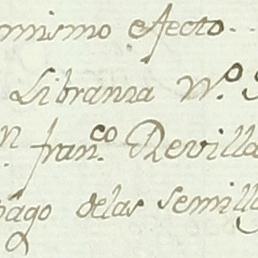 mismo efecto..
Libranza N.º
n. fran.co Revilla
pago delas semill